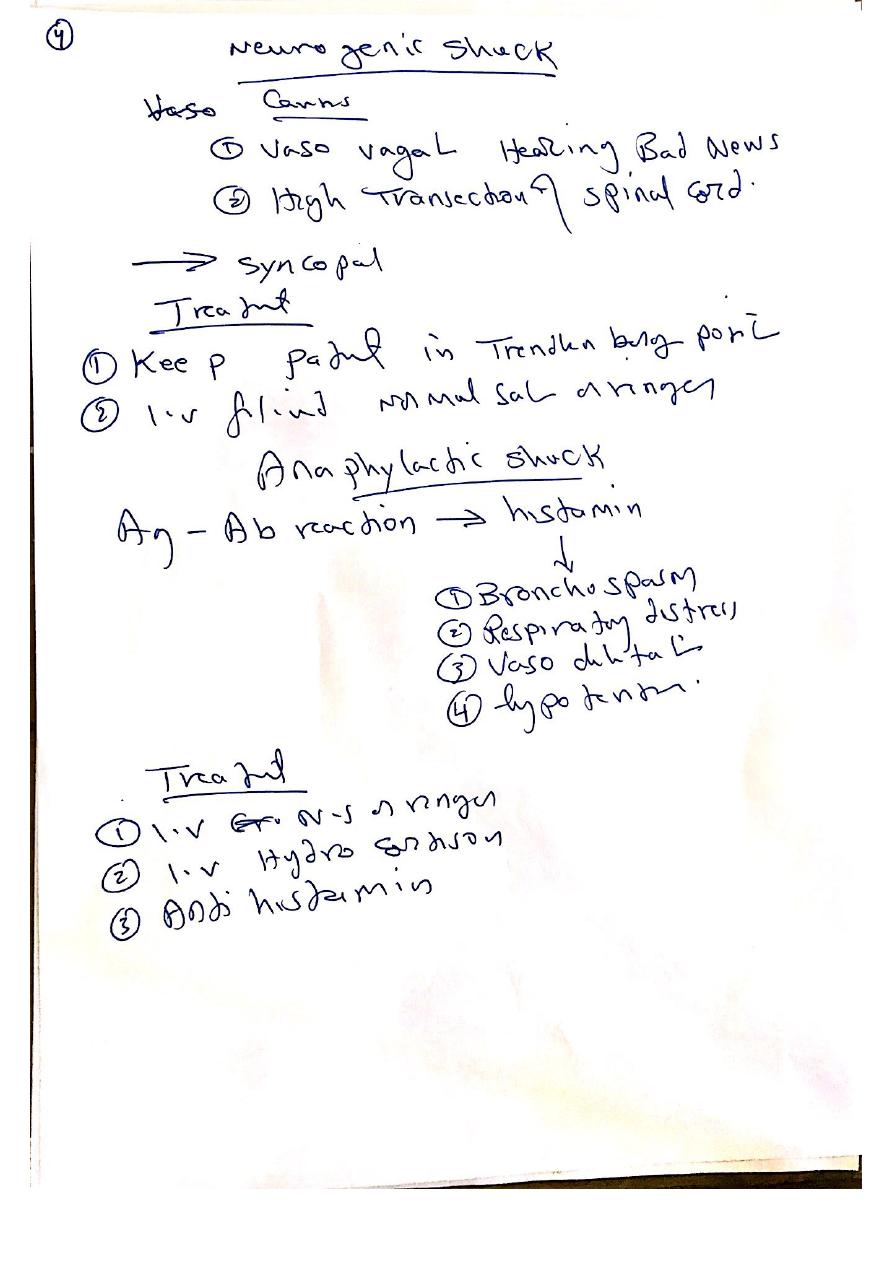 4
Neurogenic Shock
Vaso Causes
① Vaso vagal Hearing Bad News
② High Transection of spinal cord.
→ syncopal
Treatment
① Keep patient in Trendlenburg position
② I.V fluid normal sal or ringer
Anaphylactic shock
Ag - Ab reaction → histamin
↓
① Bronchospasm
② Respiratory distress
③ Vaso dilitation
④ hypotension.
Treatment
① I.V N-S or ringer
② I.V Hydro cortison
③ Anti histamin